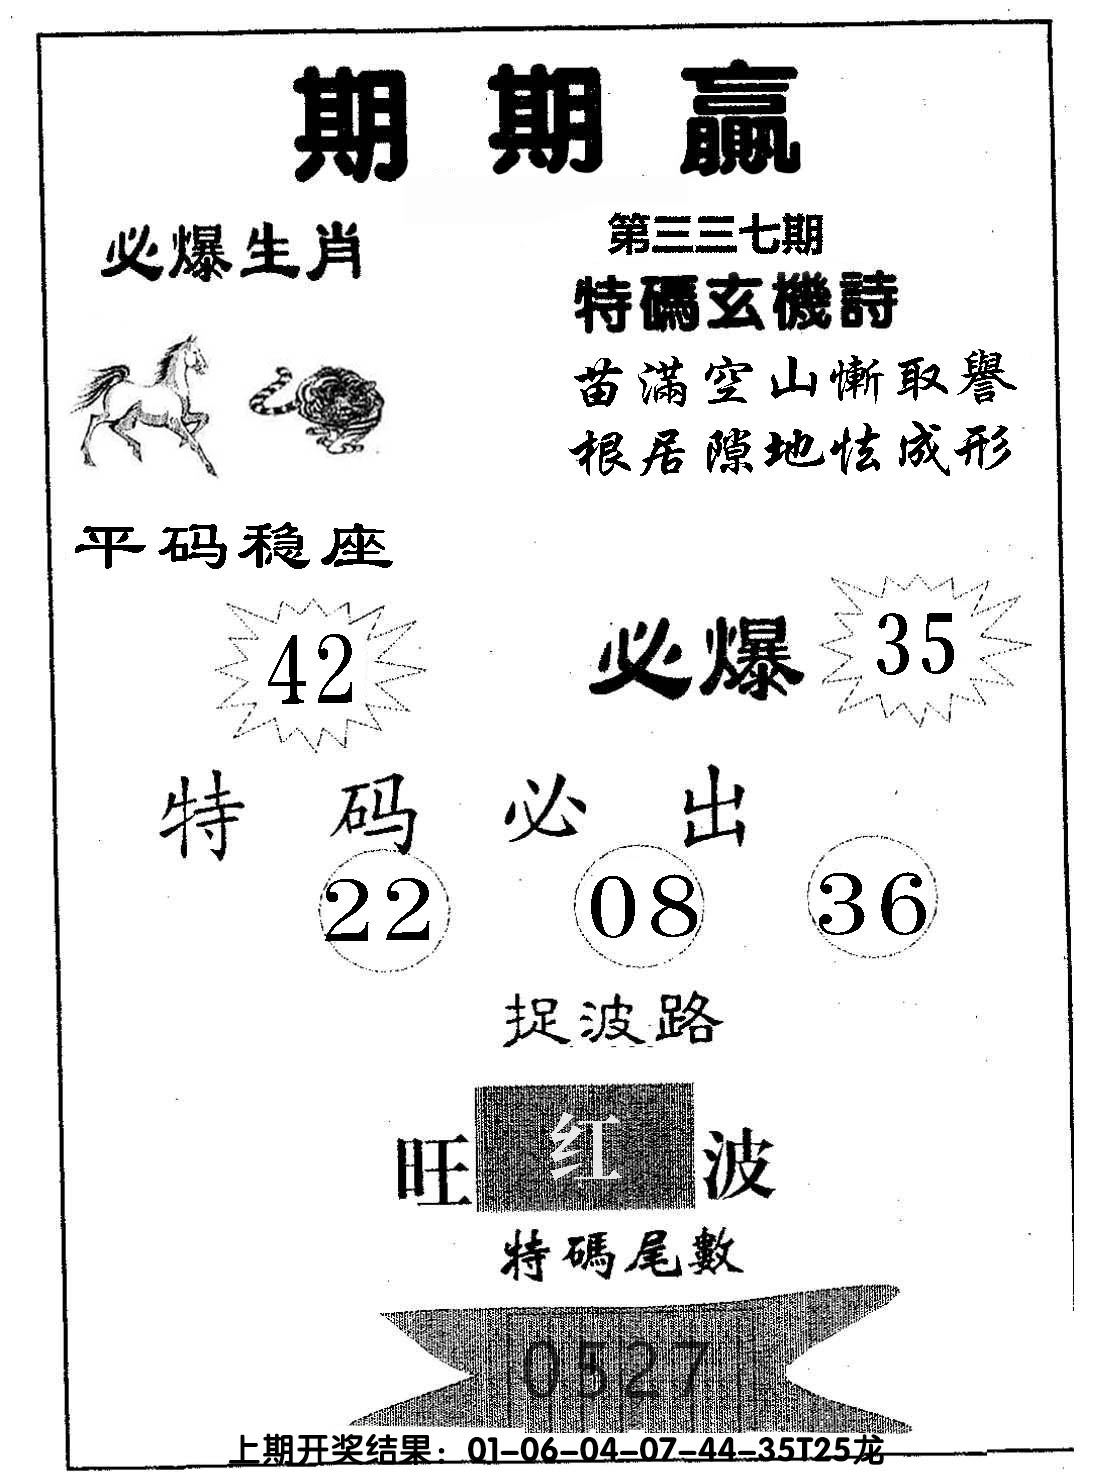 期期赢
第三三七期
必爆生肖
特碼玄機詩
苗滿空山慚取譽
根居隙地怯成形
平码稳座
42
必爆 35
特码必出
22 08 36
捉波路
旺红波
特碼尾數
0527
上期开奖结果：01-06-04-07-44-35T25龙